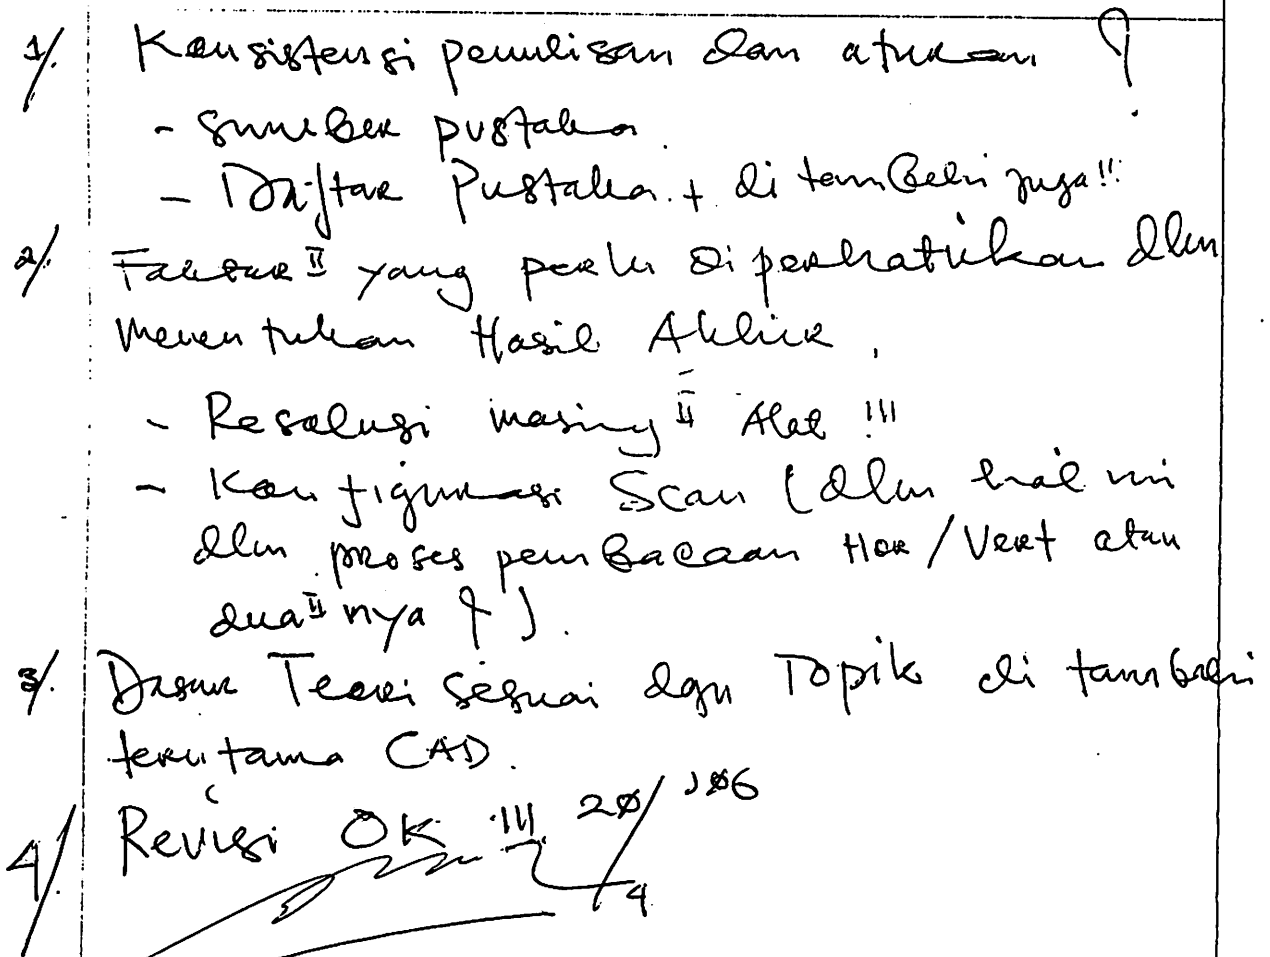 1/. Konsistensi penulisan dan aturan ?
- Sumber pustaka.
- Daftar Pustaka. + di tambahi juga!!!
2/. Faktor II yang perlu diperhatikan dlm
menentukan Hasil Akhir.
- Resolusi masing II Alat !!!
- Konfigurasi Scan (dlm hal ini
dlm proses pembacaan Hor/Vert atau
dua II nya ? ).
3/. Dasar Teori sesuai dgn Topik di tambahi
terutama CAD.
4/. Revisi OK !!! 20/4 '06